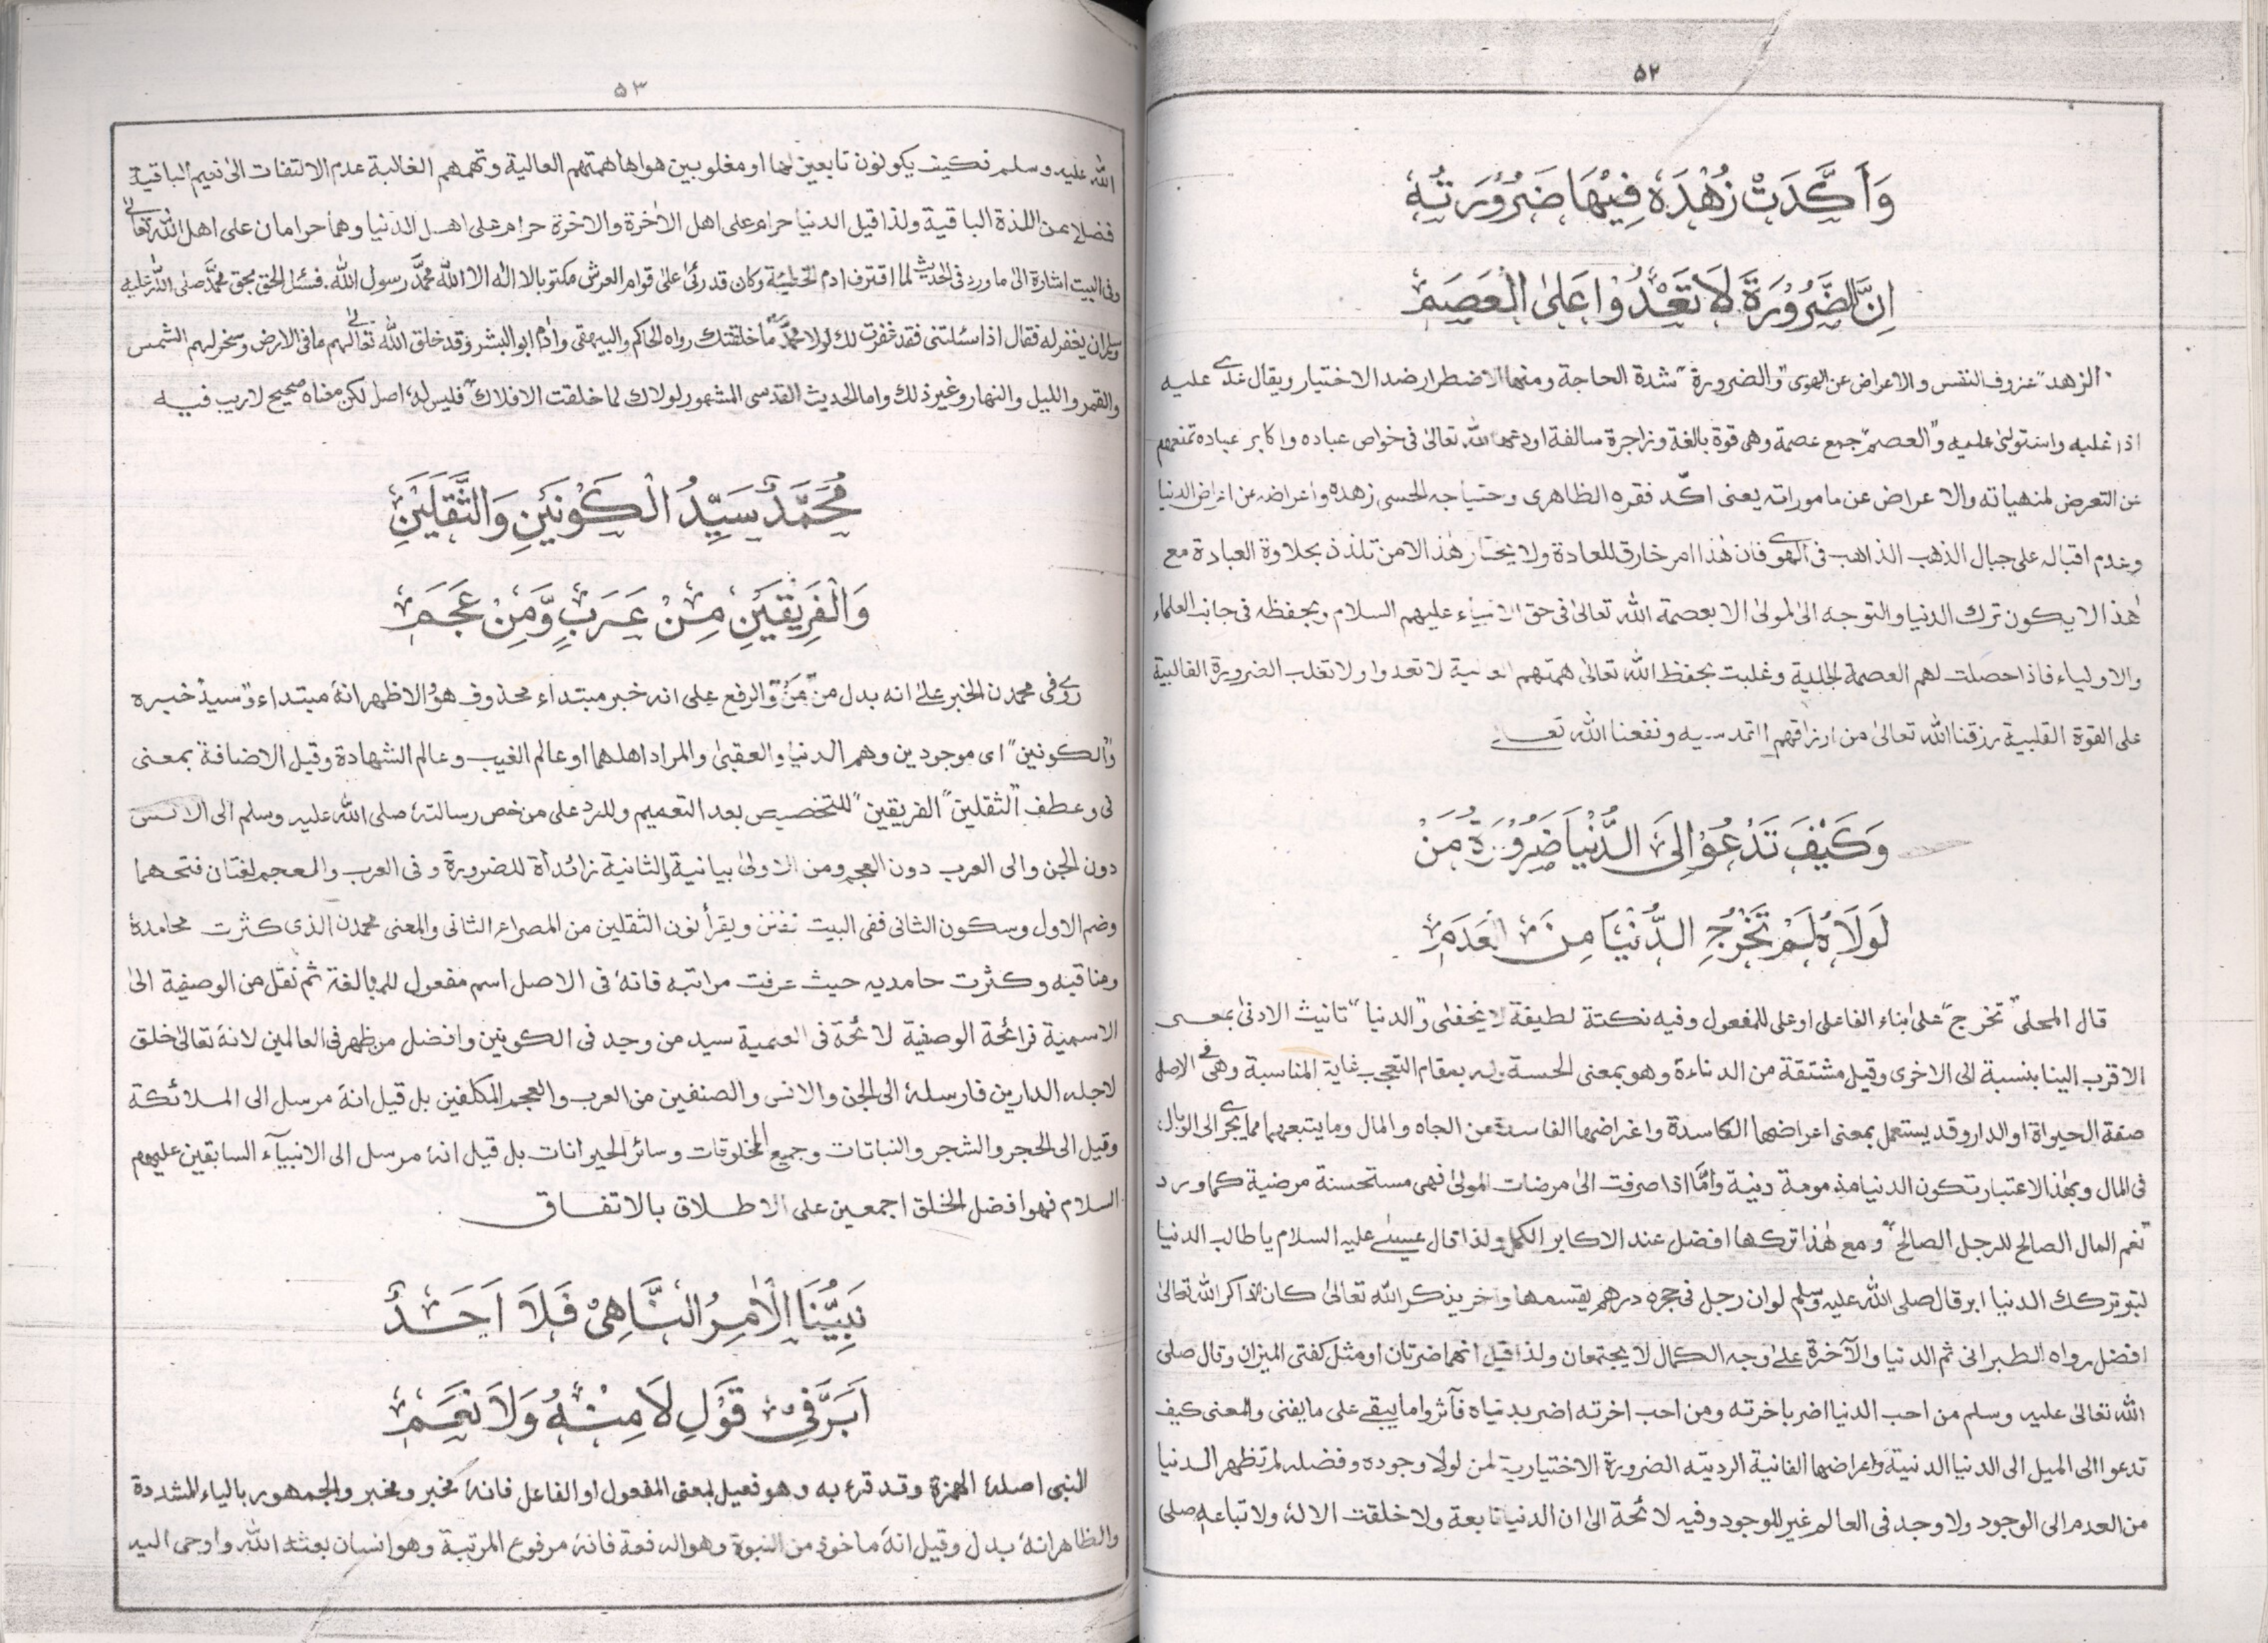 ۵۲
وَاَكَّدَتْ زُهْدَهٗ فِيْهَا ضَرُوْرَتُهٗ
اِنَّ الضَّرُوْرَةَ لَا تَعْدُوْا عَلَى الْعَصَمِ
الزهد" عزوف النفس والاعراض عن الهوى "والضرورة" شدة الحاجة ومنها الاضطرار ضد الاختيار ويقال عدے عليه
اذا غلبه واستولى عليه و"العصم" جمع عصمة وهى قوة بالغة وزاجرة سالفة اودعها الله تعالىٰ فى خواص عباده واكابر عباده تمنعهم
عن التعرض لمنهياته والاعراض عن ماموراته يعنى اكّد فقره الظاهرى وحتياجه الحسى زهده واعراضه عن اغراض الدنيا
وعدم اقباله على جبال الذهب الذاهب فى الهوےٰ فان هٰذا امر خارق للعادة ولا يختار هٰذا الا من تلذذ بحلاوة العبادة مع
هٰذا لا يكون ترك الدنيا والتوجه الى المولىٰ الا بعصمة الله تعالىٰ فى حق الانبياء عليهم السلام وبحفظه فى جانب العلماء
والاولياء فاذا حصلت لهم العصمة الجلية وغلبت بحفظ الله تعالىٰ همتهم لا تعدوا ولا تغلب الضرورة القالبية
على القوة القلبية رزقنا الله تعالىٰ من ارزاقهم ونفعنا الله تعالے
وَكَيْفَ تَدْعُوْ اِلَى الدُّنْيَا ضَرُوْرَةُ مَنْ
لَوْلَاهُ لَمْ تَخْرُجِ الدُّنْيَا مِنَ الْعَدَمِ
قال المحلى "تخرج" على بناء الفاعل او على للمفعول وفيه نكتة لطيفة لا يخفىٰ و"الدنيا" تانيث الادنىٰ بمعنى
الاقرب الينا بنسبة الى الاخرى وقيل مشتقة من الدناءة وهو بمعنى الخسة وله بمقام التعجب غاية المناسبة وهى فى الاصل
صفة الحيواة او الدار وقد يستعمل بمعنى اعراضها الكاسدة واغراضها الفاسدة من الجاه والمال وما يتبعهما مما يجرے الى الوبال،
فى المال وبهٰذا الاعتبار تكون الدنيا مذمومة دنية وامّا اذا صرفت الىٰ مرضات المولىٰ فهى مستحسنة مرضية كما ورد
"نعم المال الصالح للرجل الصالح" ومع هٰذا تركها افضل عند الاكابر الكمل ولذا قال عيسٰے عليه السلام يا طالب الدنيا
لتبر تركك الدنيا ابر قال صلى الله عليه وسلم لو ان رجل فى حجره درهم يقسمها واخر يذكر الله تعالىٰ كان الذاكر الله تعالىٰ
افضل رواه الطبرانى ثم الدنيا والآخرة علےٰ وجه الكمال لا يجتمعان ولذا قيل انهما ضرتان او مثل كفتى الميزان وقال صلى
الله تعالىٰ عليه وسلم من احب الدنيا اضر باخرته ومن احب اخرته اضر بدنياه فآثروا ما يبقے على ما يفنى والمعنى كيف
تدعوا الى الميل الى الدنيا الدنية واعراضها الفانية الرديته الضرورة الاختيارية لمن لولا وجوده وفضله لم تظهر الدنيا
من العدم الى الوجود ولا وجد فى العالم غير الموجود وفيه لائحة الىٰ ان الدنيا تابعة ولا خلقت الا له ولاتباعه صلى
۵۳
الله عليه وسلم فكيف يكونون تابعين لها او مغلوبين هواها همتهم العالية وتهمهم الغالبة عدم الالتفات الىٰ نعيم الباقية
فضلا عن اللذة الباقية ولذا قيل الدنيا حرام على اهل الاٰخرة والاخرة حرام على اهل الدنيا وهما حرامان على اهل الله تعالےٰ
وفى البيت اشارة الىٰ ما ورد فى الحديث لما اقترف ادم الخطيئة وكان قد رئى علىٰ قوام العرش مكتوبا لا الٰه الا الله محمّد رسول الله. فسئل الحق بحق محمّد صلى الله عليه
وسلم ان يغفر له فقال اذا سئلتنى فقد غفرت لك لولا محمّد ما خلقتك رواه الحاكم والبيهقى واٰدم ابو البشر وقد خلق الله تعالےٰ لهم ما فى الارض وسخر لهم الشمس
والقمر والليل والنهار وغير ذلك واما الحديث القدسى المشهور لولاك لما خلقت الافلاك" فليس له اصل لكن معناه صحيح لا ريب فيه
مُحَمَّدٌ سَيِّدُ الْكَوْنَيْنِ وَالثَّقَلَيْنِ
وَالْفَرِيْقَيْنِ مِنْ عَرَبٍ وَّمِنْ عَجَمِ
رےٰ فى محمدن الخبر علےٰ انه بدل من "مَنْ" والرفع على انه خبر مبتداء محذوف هو والاظهر انهٗ مبتداء و"سيد" خبره
و"الكونين" اى موجودين وهم الدنيا والعقبىٰ والمراد اهلهما او عالم الغيب وعالم الشهادة وقيل الاضافة بمعنى
فى وعطف "الثقلين" "الفريقين" للتخصيص بعد التعميم وللرد على من خص رسالتهٗ صلى الله عليه وسلم الى الانس
دون الجن والى العرب دون العجم ومن الاولىٰ بيانية والثانية زائدة للضرورة وفى العرب والعجم لغتان فتحهما
وضم الاول وسكون الثانى ففى البيت تفنن ويقرأ نون الثقلين من المصراع الثانى والمعنى محمدن الذى كثرت محامدهٗ
ومناقبه وكثرت حامديه حيث عرفت مراتبه فانهٗ فى الاصل اسم مفعول للمبالغة ثم نقل من الوصفية الىٰ
الاسمية فرائحة الوصفية لائحة فى العلمية سيد من وجد فى الكونين وافضل من ظهر فى العالمين لانهٗ تعالىٰ خلق
لاجله الدارين فارسلهٗ الى الجن والانس والصنفين من العرب والعجم المكلفين بل قيل انهٗ مرسل الى الملائكة
وقيل الى الحجر والشجر والنباتات وجميع المخلوقات وسائر الحيوانات بل قيل انهٗ مرسل الى الانبيآء السابقين عليهم
السلام فهو افضل الخلق اجمعين على الاطلاق بالاتفاق
نَبِيُّنَا الْاٰمِرُ النَّاهِىْ فَلَا اَحَدٌ
اَبَرَّ فِىْ قَوْلِ لَا مِنْهُ وَلَا نَعَمِ
النبى اصلهٗ الهمزة وقد قرئ به وهو فعيل بمعنى المفعول او الفاعل فانهٗ مخبر ومخبر والجمهور بالياء المشددة
والظاهر انهٗ بدل وقيل انهٗ ماخوذ من النبوة وهو الرفعة فانهٗ مرفوع المرتبة وهو انسان بعثه الله واوحى اليه